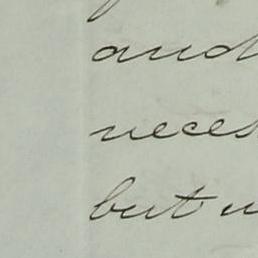 and
neces
but